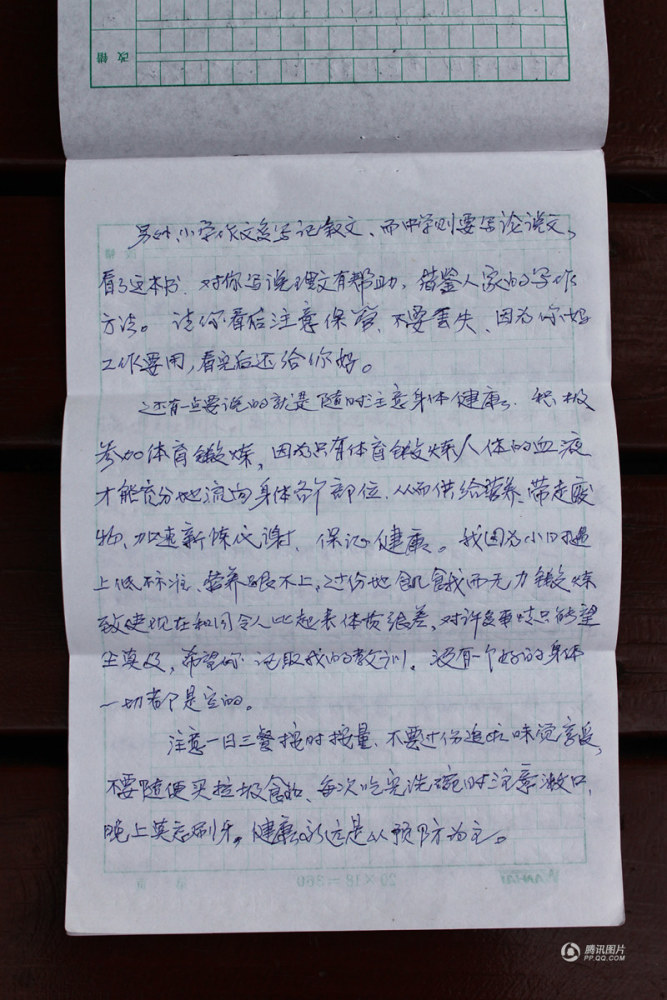 改 错
另外、小学作文多写记叙文、而中学则要写论说文,
看了这本书.对你写说理文有帮助,借鉴人家的写作
方法。请你看后注意保管、不要丢失、因为你妈
工作要用,看完后还给你妈。
还有一点要说的就是随时注意身体健康.积极
参加体育锻炼,因为只有体育锻炼人体的血液
才能充分地流向身体各个部位.从而供给营养、带走废
物、加速新陈代谢、保证健康。我因为小时遇
上低标准、营养跟不上,过份地饥饿而无力锻炼
致使现在和同令人比起来体质很差,对许多事情只能望
尘莫及,希望你记取我的教训.没有一个好的身体
一切都是空的。
注意一日三餐按时按量、不要过份追求味觉享受,
不要随便买垃圾食品、每次吃完洗碗时注意漱口,
晚上莫忘刷牙。健康永远是以预防为主。
20×18=360
腾讯图片
PP.QQ.COM